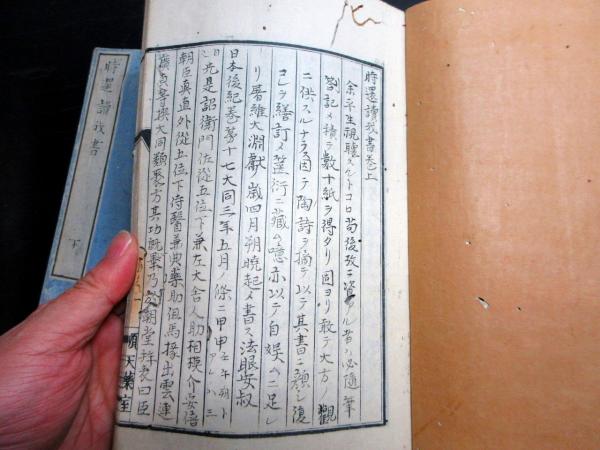 時還讀我書卷上
余平生視聽スルトコロ苟後攷ニ資スル者ハ必隨筆
箚記メ積テ數十紙ヲ得タリ固ヨリ敢テ大方ノ觀
ニ供スルナラス因テ陶詩ヲ摘テ以テ其書ニ顏シ復
コレヲ繕訂メ篋衍ニ藏ム噫亦以テ自娛ムニ足レ
リ屠維大淵獻歲四月朔曉起メ書ス法眼安叔
日本後紀卷第十七大同三年五月ノ條ニ甲申
先是詔衛門佐從五位下兼左大舍人助相模介安倍
朝臣眞直外從五位下侍醫兼典藥助但馬掾出雲連
廣貞等撰大同類聚方其功既畢乃 朝堂拜表曰臣
順天藥室
時還讀我書 下